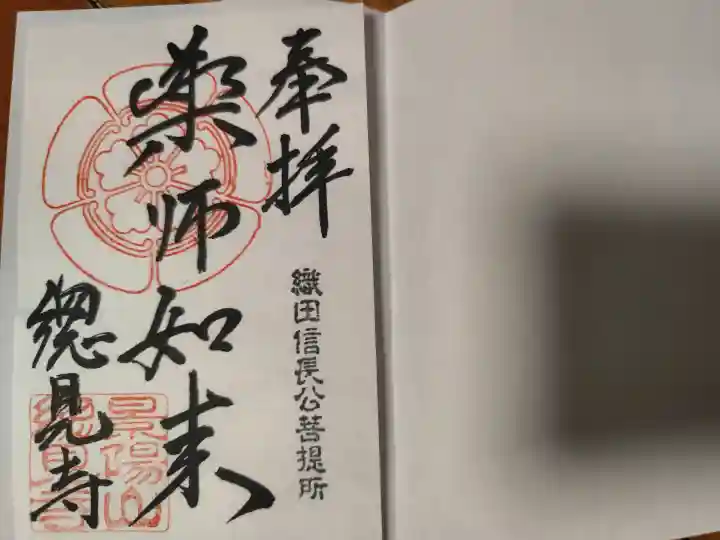 奉拝
織田信長公菩提所
薬師如来
景陽山
總見寺
總見寺